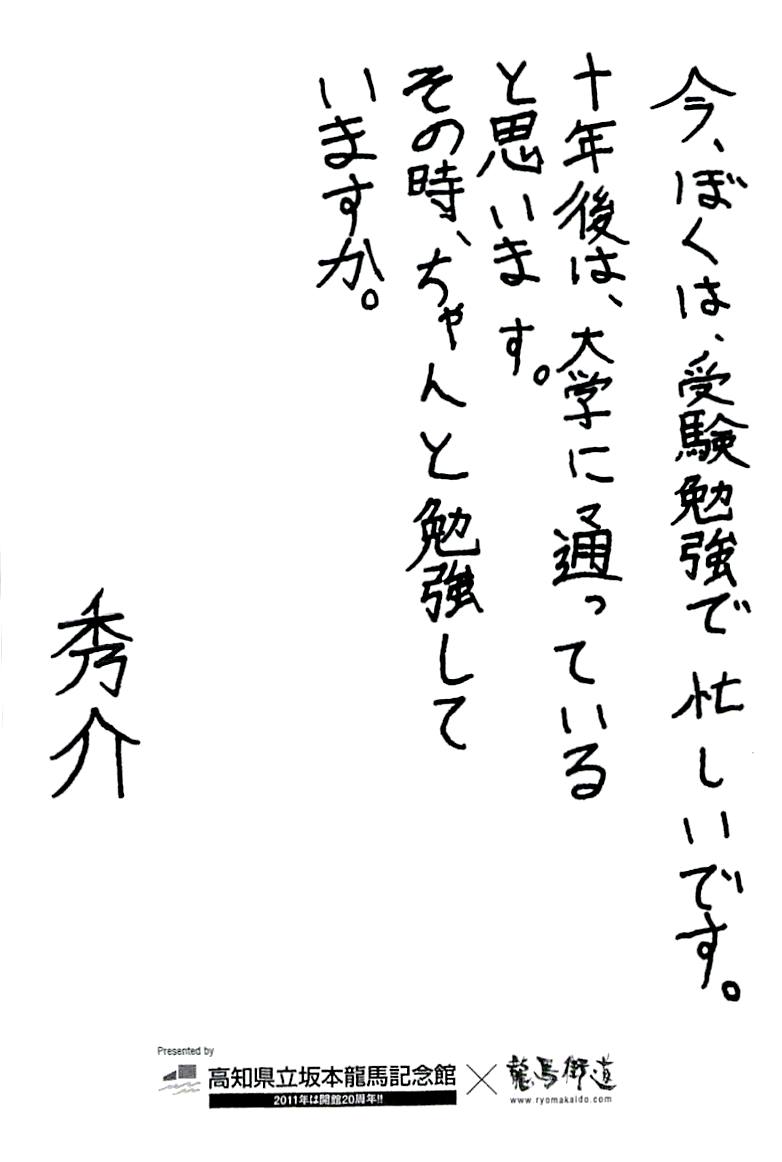 今、ぼくは、受験勉強で忙しいです。
十年後は、大学に通っている
と思います。
その時、ちゃんと勉強して
いますか。
秀介
Presented by
高知県立坂本龍馬記念館×龍馬街道
2011年は開館20周年!!
www.ryomakaido.com